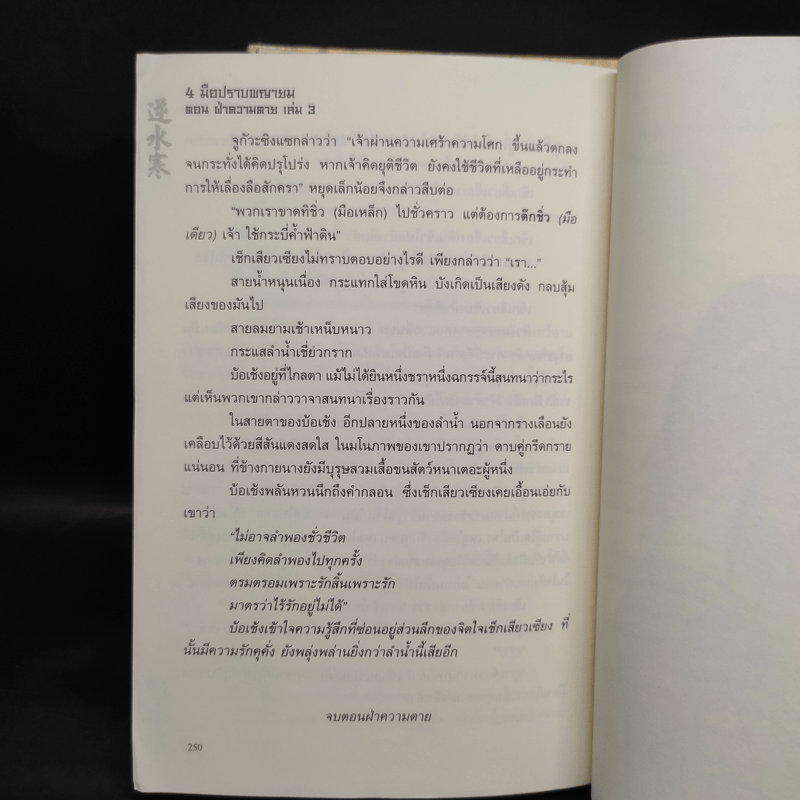 逆水寒
4 มือปราบพญายม
ตอน ฝ่าความตาย เล่ม 3
จูกัวะซิงแซกล่าวว่า “เจ้าผ่านความเศร้าความโศก ขึ้นแล้วตกลง
จนกระทั่งได้คิดปรุโปร่ง หากเจ้าคิดยุติชีวิต ยังคงใช้ชีวิตที่เหลืออยู่กระทำ
การให้เลื่องลือสักครา” หยุดเล็กน้อยจึงกล่าวสืบต่อ
“พวกเราขาดทิชิ่ว (มือเหล็ก) ไปชั่วคราว แต่ต้องการต๊กชิ่ว (มือ
เดียว) เจ้า ใช้กระบี่ค้ำฟ้าดิน”
เช็กเสียวเซียงไม่ทราบตอบอย่างไรดี เพียงกล่าวว่า “เรา...”
สายน้ำหนุนเนื่อง กระแทกใส่โขดหิน บังเกิดเป็นเสียงดัง กลบสุ้ม
เสียงของมันไป
สายลมยามเช้าเหน็บหนาว
กระแสลำน้ำเชี่ยวกราก
บ้อเช้งอยู่ที่ไกลตา แม้ไม่ได้ยินหนึ่งชราหนึ่งฉกรรจ์นี้สนทนาว่ากระไร
แต่เห็นพวกเขากล่าววาจาสนทนาเรื่องราวกัน
ในสายตาของบ้อเช้ง อีกปลายหนึ่งของลำน้ำ นอกจากรางเลือนยัง
เคลือบไว้ด้วยสีสันแดงสดใส ในมโนภาพของเขาปรากฏว่า ดาบคู่กรีดกราย
แน่นอน ที่ข้างกายนางยังมีบุรุษสวมเสื้อขนสัตว์หนาเตอะผู้หนึ่ง
บ้อเช้งพลันหวนนึกถึงคำกลอน ซึ่งเช็กเสียวเซียงเคยเอื้อนเอ่ยกับ
เขาว่า
“ไม่อาจลำพองชั่วชีวิต
เพียงคิดลำพองไปทุกครั้ง
ตรมตรอมเพราะรักสิ้นเพราะรัก
มาตรว่าไร้รักอยู่ไม่ได้”
บ้อเช้งเข้าใจความรู้สึกที่ซ่อนอยู่ส่วนลึกของจิตใจเช็กเสียวเซียง ที่
นั้นมีความรักคุคั่ง ยังพลุ่งพล่านยิ่งกว่าลำน้ำนี้เสียอีก
จบตอนฝ่าความตาย
250